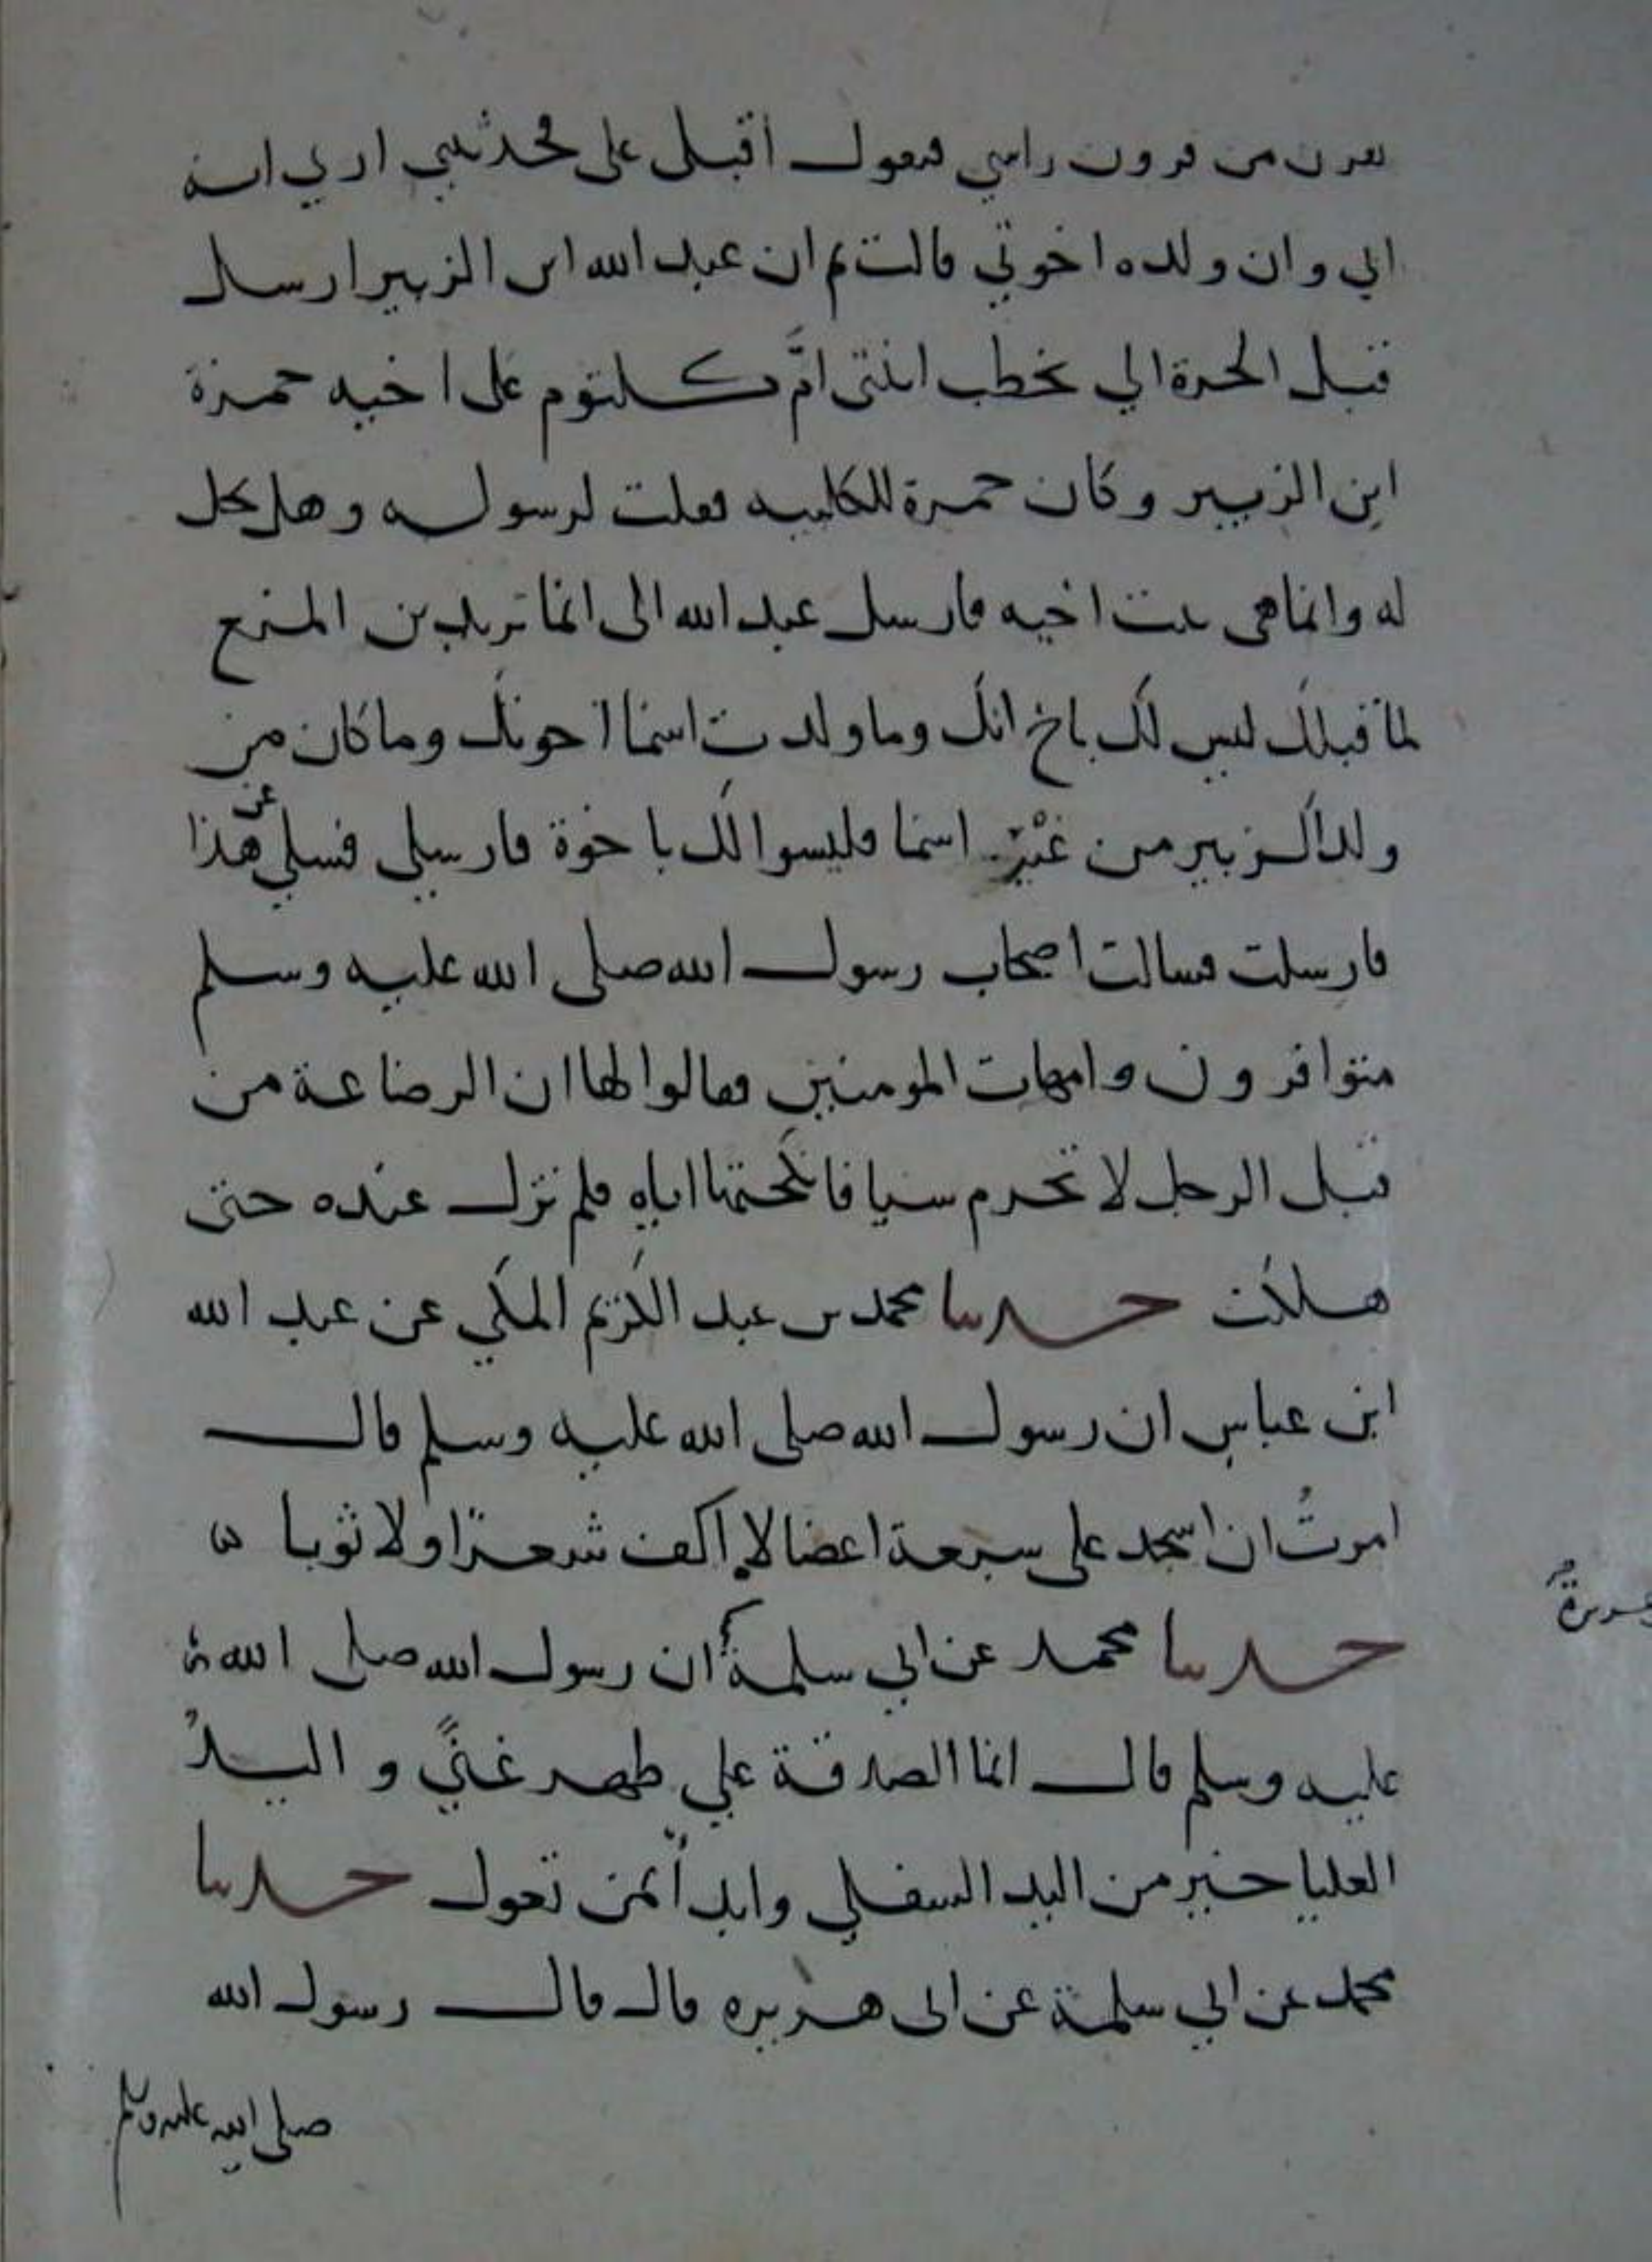 بقرن من قرون راسي فيقول اقبل على فحدثيني اري انه
ابي وان ولده اخوتي قالت ثم ان عبد الله ابن الزبير ارسل
قبل الحرة الي يخطب ابنتي امّ كلثوم على اخيه حمزة
ابن الزبير وكان حمزة للكلبيه فقلت لرسوله وهل تحل
له وانما هي بنت اخيه فارسل عبد الله الى انما تريدين المنع
لما قبلك ليس لك باخ انك وما ولدت اسما اخوتك وما كان من
ولد الزبير من غير اسما فليسوا لك باخوة فارسلي فسلي عن هذا
فارسلت فسالت اصحاب رسول الله صلى الله عليه وسلم
متوافرون وامهات المومنين فقالوا لها ان الرضاعة من
قبل الرجل لا تحرم شيا فانكحتها اياه فلم تزل عنده حتى
هلكت حدثنا محمد بن عبد الكريم المكي عن عبد الله
ابن عباس ان رسول الله صلى الله عليه وسلم قال
امرتُ ان اسجد على سبعة اعضا لا اكف شعرا ولا ثوبا
حدثنا محمد عن ابي سلمة ان رسول الله صلى الله
عليه وسلم قال انما الصدقة علي ظهر غنيً و اليدُ
العليا خير من اليد السفلي وابدأ بمن تعول حدثنا
محمد عن ابي سلمة عن ابى هريره قال قال رسول الله
صلى الله عليه وسلم